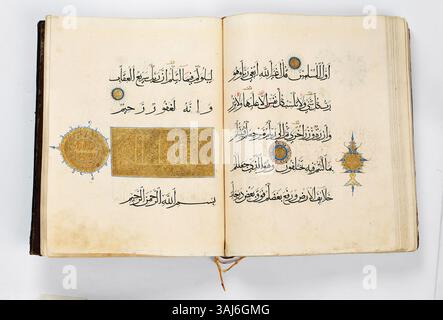 اول المسلمين قل اغير الله ابغي ربا وهو
رب كل شي ولا تكسب كل نفس الا عليها ولا تزر
وازرة وزر اخرى ثم الى ربكم مرجعكم فينبئكم
بما كنتم فيه تختلفون وهو الذي جعلكم
خلايف الارض ورفع بعضكم فوق بعض درجات
ليبلوكم في ما اتيكم ان ربك سريع العقاب
وانه لغفور رحيم
بسم الله الرحمن الرحيم
alamy
Image ID: 2AJ6GMG